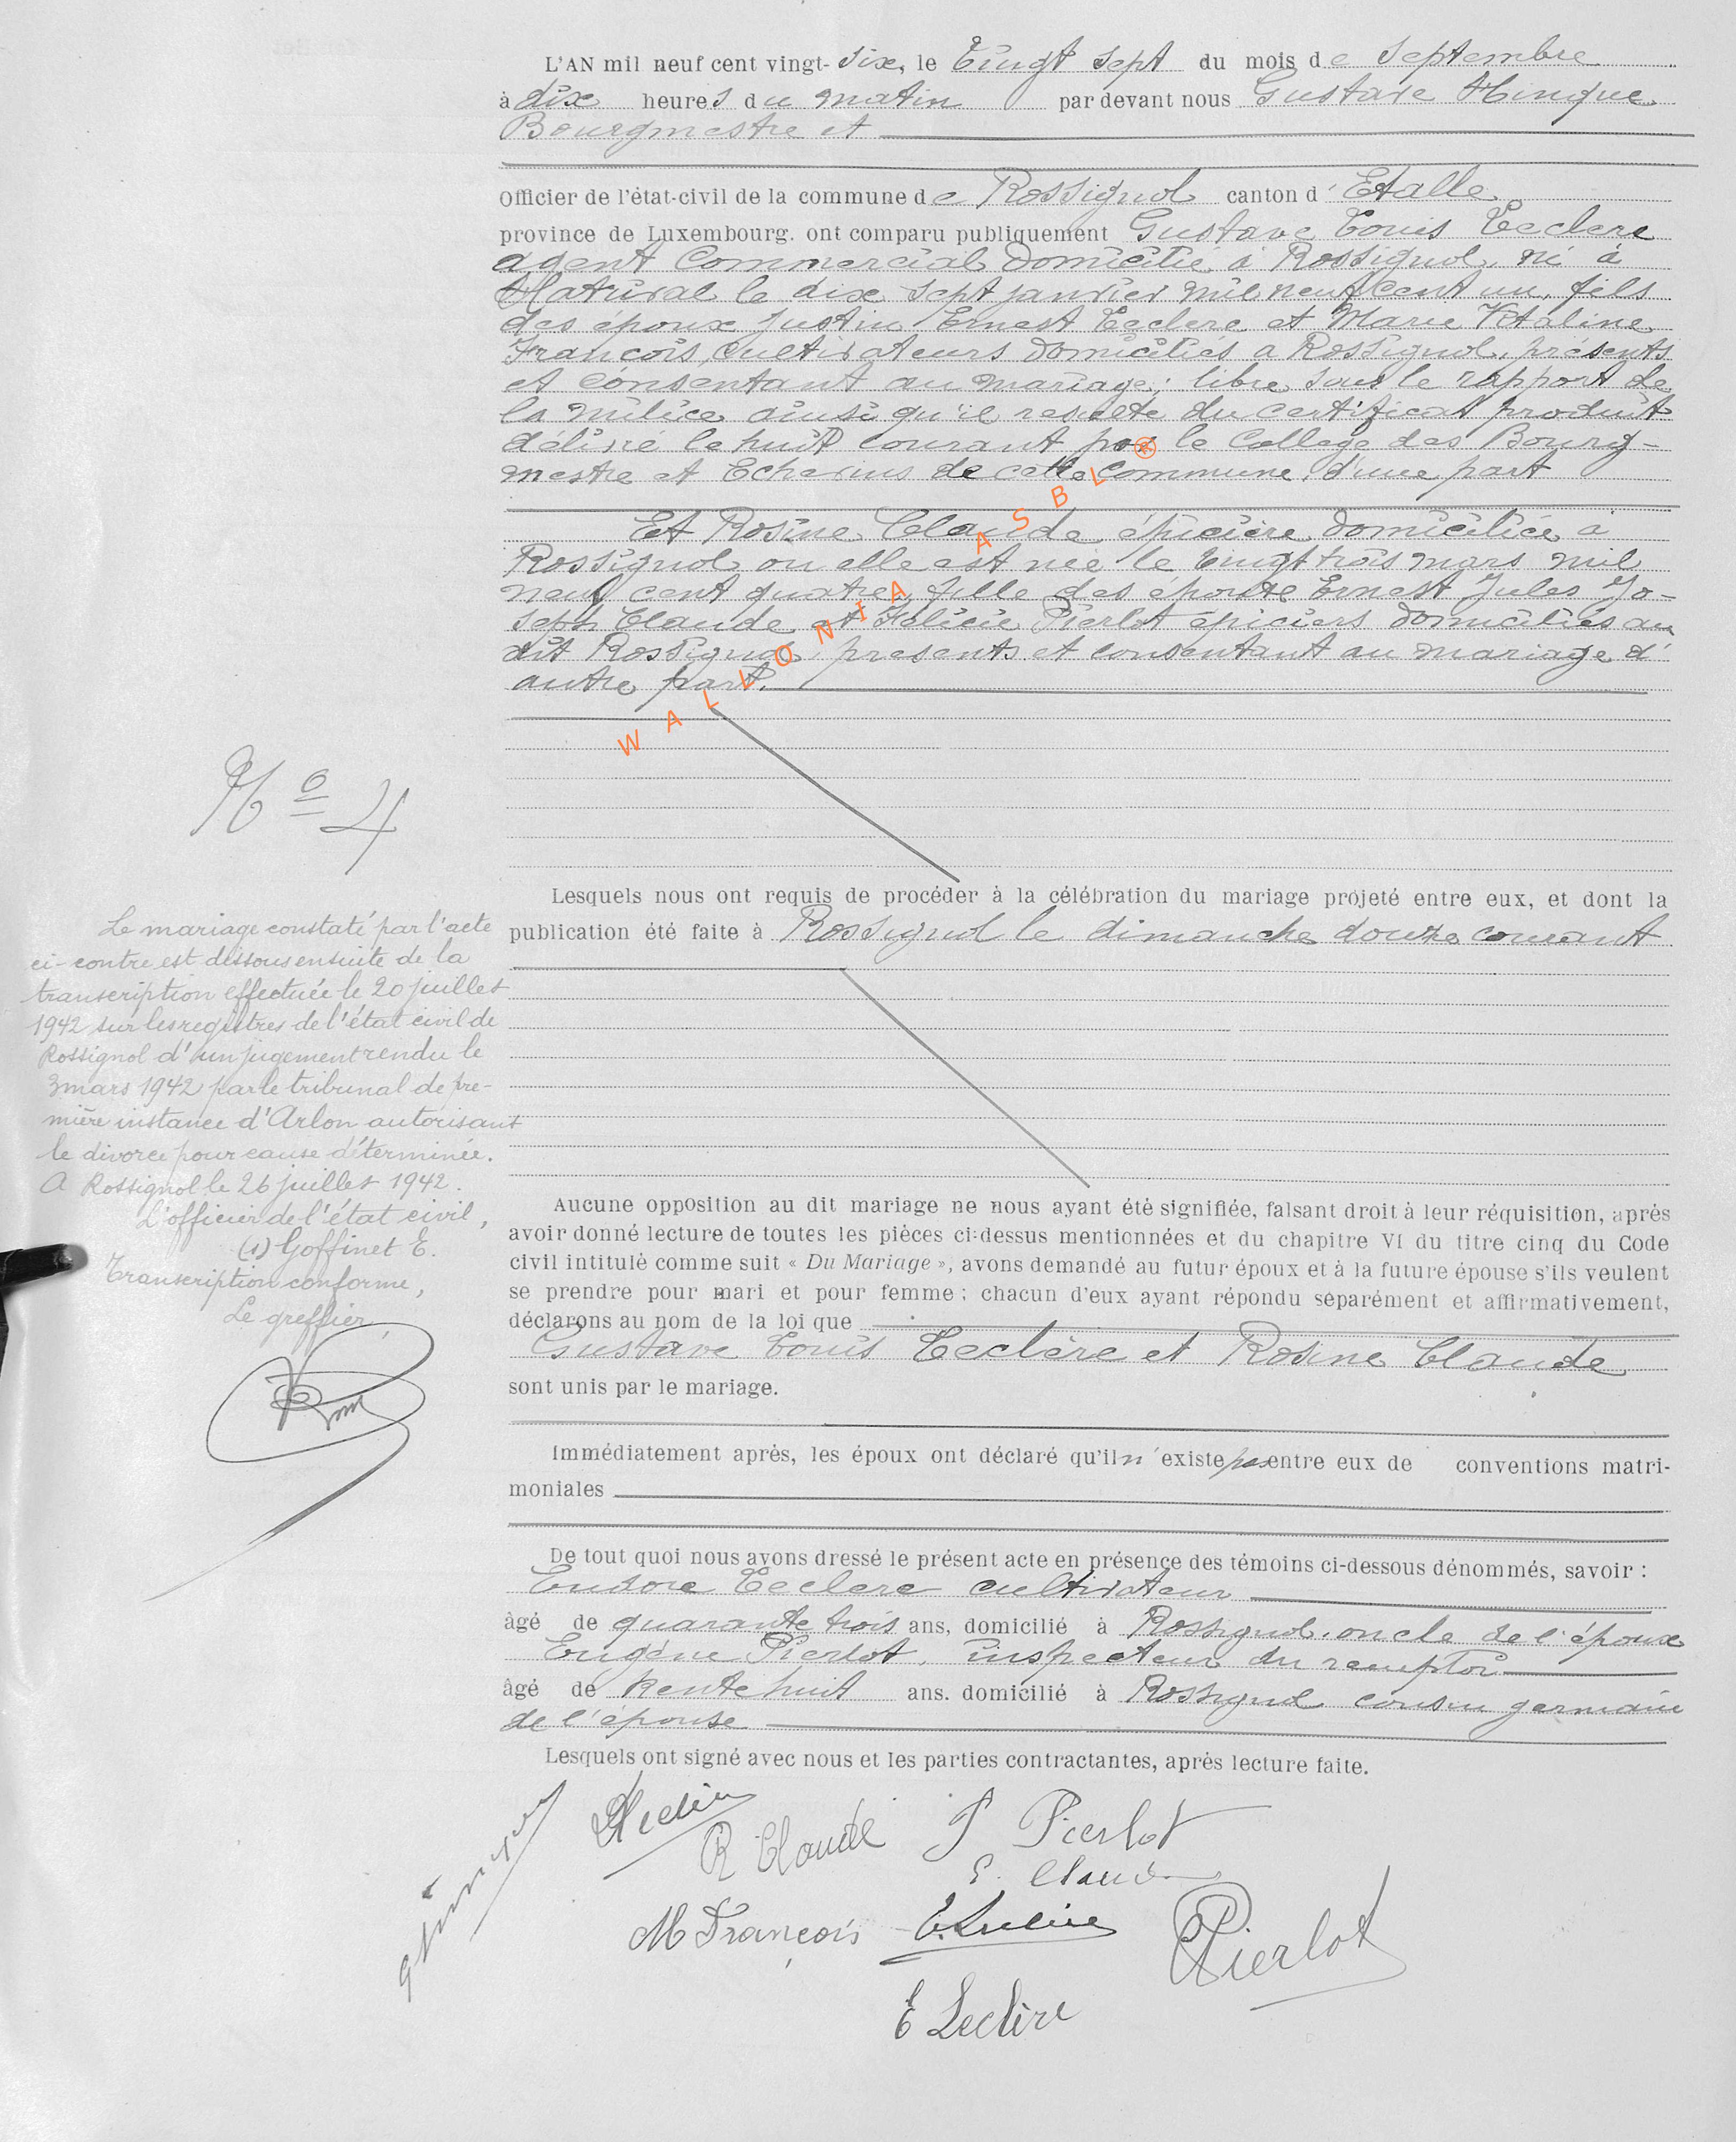 L'AN mil neuf cent vingt-six, le vingt sept du mois de Septembre
à dix heures du matin par devant nous Gustave Hinque
Bourgmestre et
Officier de l'état-civil de la commune de Rossignol canton d'Etalle
province de Luxembourg. ont comparu publiquement Gustave Louis Leclère
agent Commercial domicilié à Rossignol, né à
le dix sept janvier mil neuf cent un, fils
des époux Justin Ernest Leclère et Marie Vitaline
François, Cultivateurs domiciliés à Rossignol, présents
et consentant au mariage; libre sous le rapport de
la milice ainsi qu'il resulte du certificat produit
délivré le huit courant par le College des Bourg-
mestre et Echevins de cette commune, d'une part
Et Rosine Claude épicière domiciliée à
Rossignol ou elle est née le vingt trois mars mil
neuf cent quatre, fille des époux Ernest Jules Jo-
seph Claude et Félicie Pierlot épiciers domiciliés au
dit Rossignol, presents et consentant au mariage d'
autre part.
WALLONIA ASBL
N° 4
Lesquels nous ont requis de procéder à la célébration du mariage projeté entre eux, et dont la
publication été faite à Rossignol le dimanche douze courant
Le mariage constaté par l'acte
ci-contre est dissous ensuite de la
transcription effectuée le 20 juillet
1942 sur les registres de l'état civil de
Rossignol d'un jugement rendu le
3 mars 1942 par le tribunal de pre-
mière instance d'Arlon autorisant
le divorce pour cause déterminée.
A Rossignol le 26 juillet 1942.
L'officier de l'état civil,
(s) Goffinet E.
Transcription conforme,
Le greffier,
Aucune opposition au dit mariage ne nous ayant été signifiée, faisant droit à leur réquisition, après
avoir donné lecture de toutes les pièces ci-dessus mentionnées et du chapitre VI du titre cinq du Code
civil intitulé comme suit « Du Mariage », avons demandé au futur époux et à la future épouse s'ils veulent
se prendre pour mari et pour femme ; chacun d'eux ayant répondu séparément et affirmativement,
déclarons au nom de la loi que
Gustave Louis Leclère et Rosine Claude
sont unis par le mariage.
Immédiatement après, les époux ont déclaré qu'il n'existe pas entre eux de conventions matri-
moniales
De tout quoi nous avons dressé le présent acte en présence des témoins ci-dessous dénommés, savoir :
Leclere cultivateur
âgé de quarante trois ans, domicilié à Rossignol, oncle de l'époux
Eugène Pierlot, inspecteur du
âgé de trente huit ans. domicilié à Rossignol cousin germain
de l'épouse
Lesquels ont signé avec nous et les parties contractantes, après lecture faite.
R Claude
Pierlot
E. Claude
M François
Pierlot
E Leclère